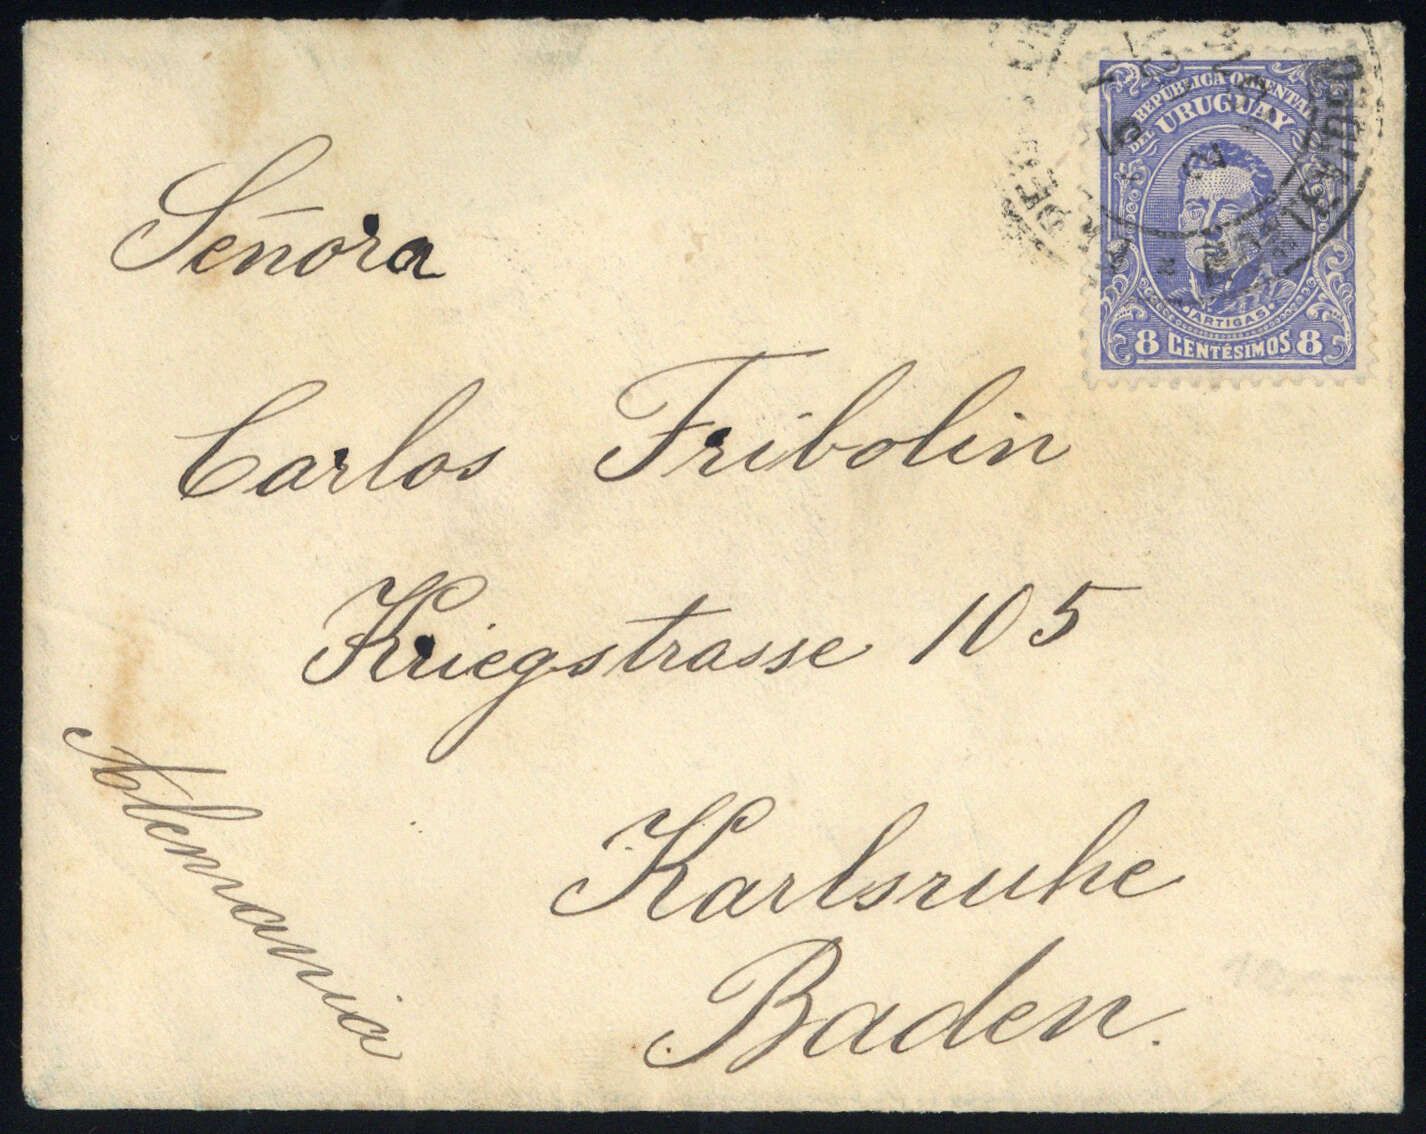 REPUBLICA ORIENTAL
DEL URUGUAY
ARTIGAS
8 CENTÉSIMOS 8
MONTEVIDEO
Señora
Carlos Fribolin
Kriegstrasse 105
Karlsruhe
Baden.
Alemania